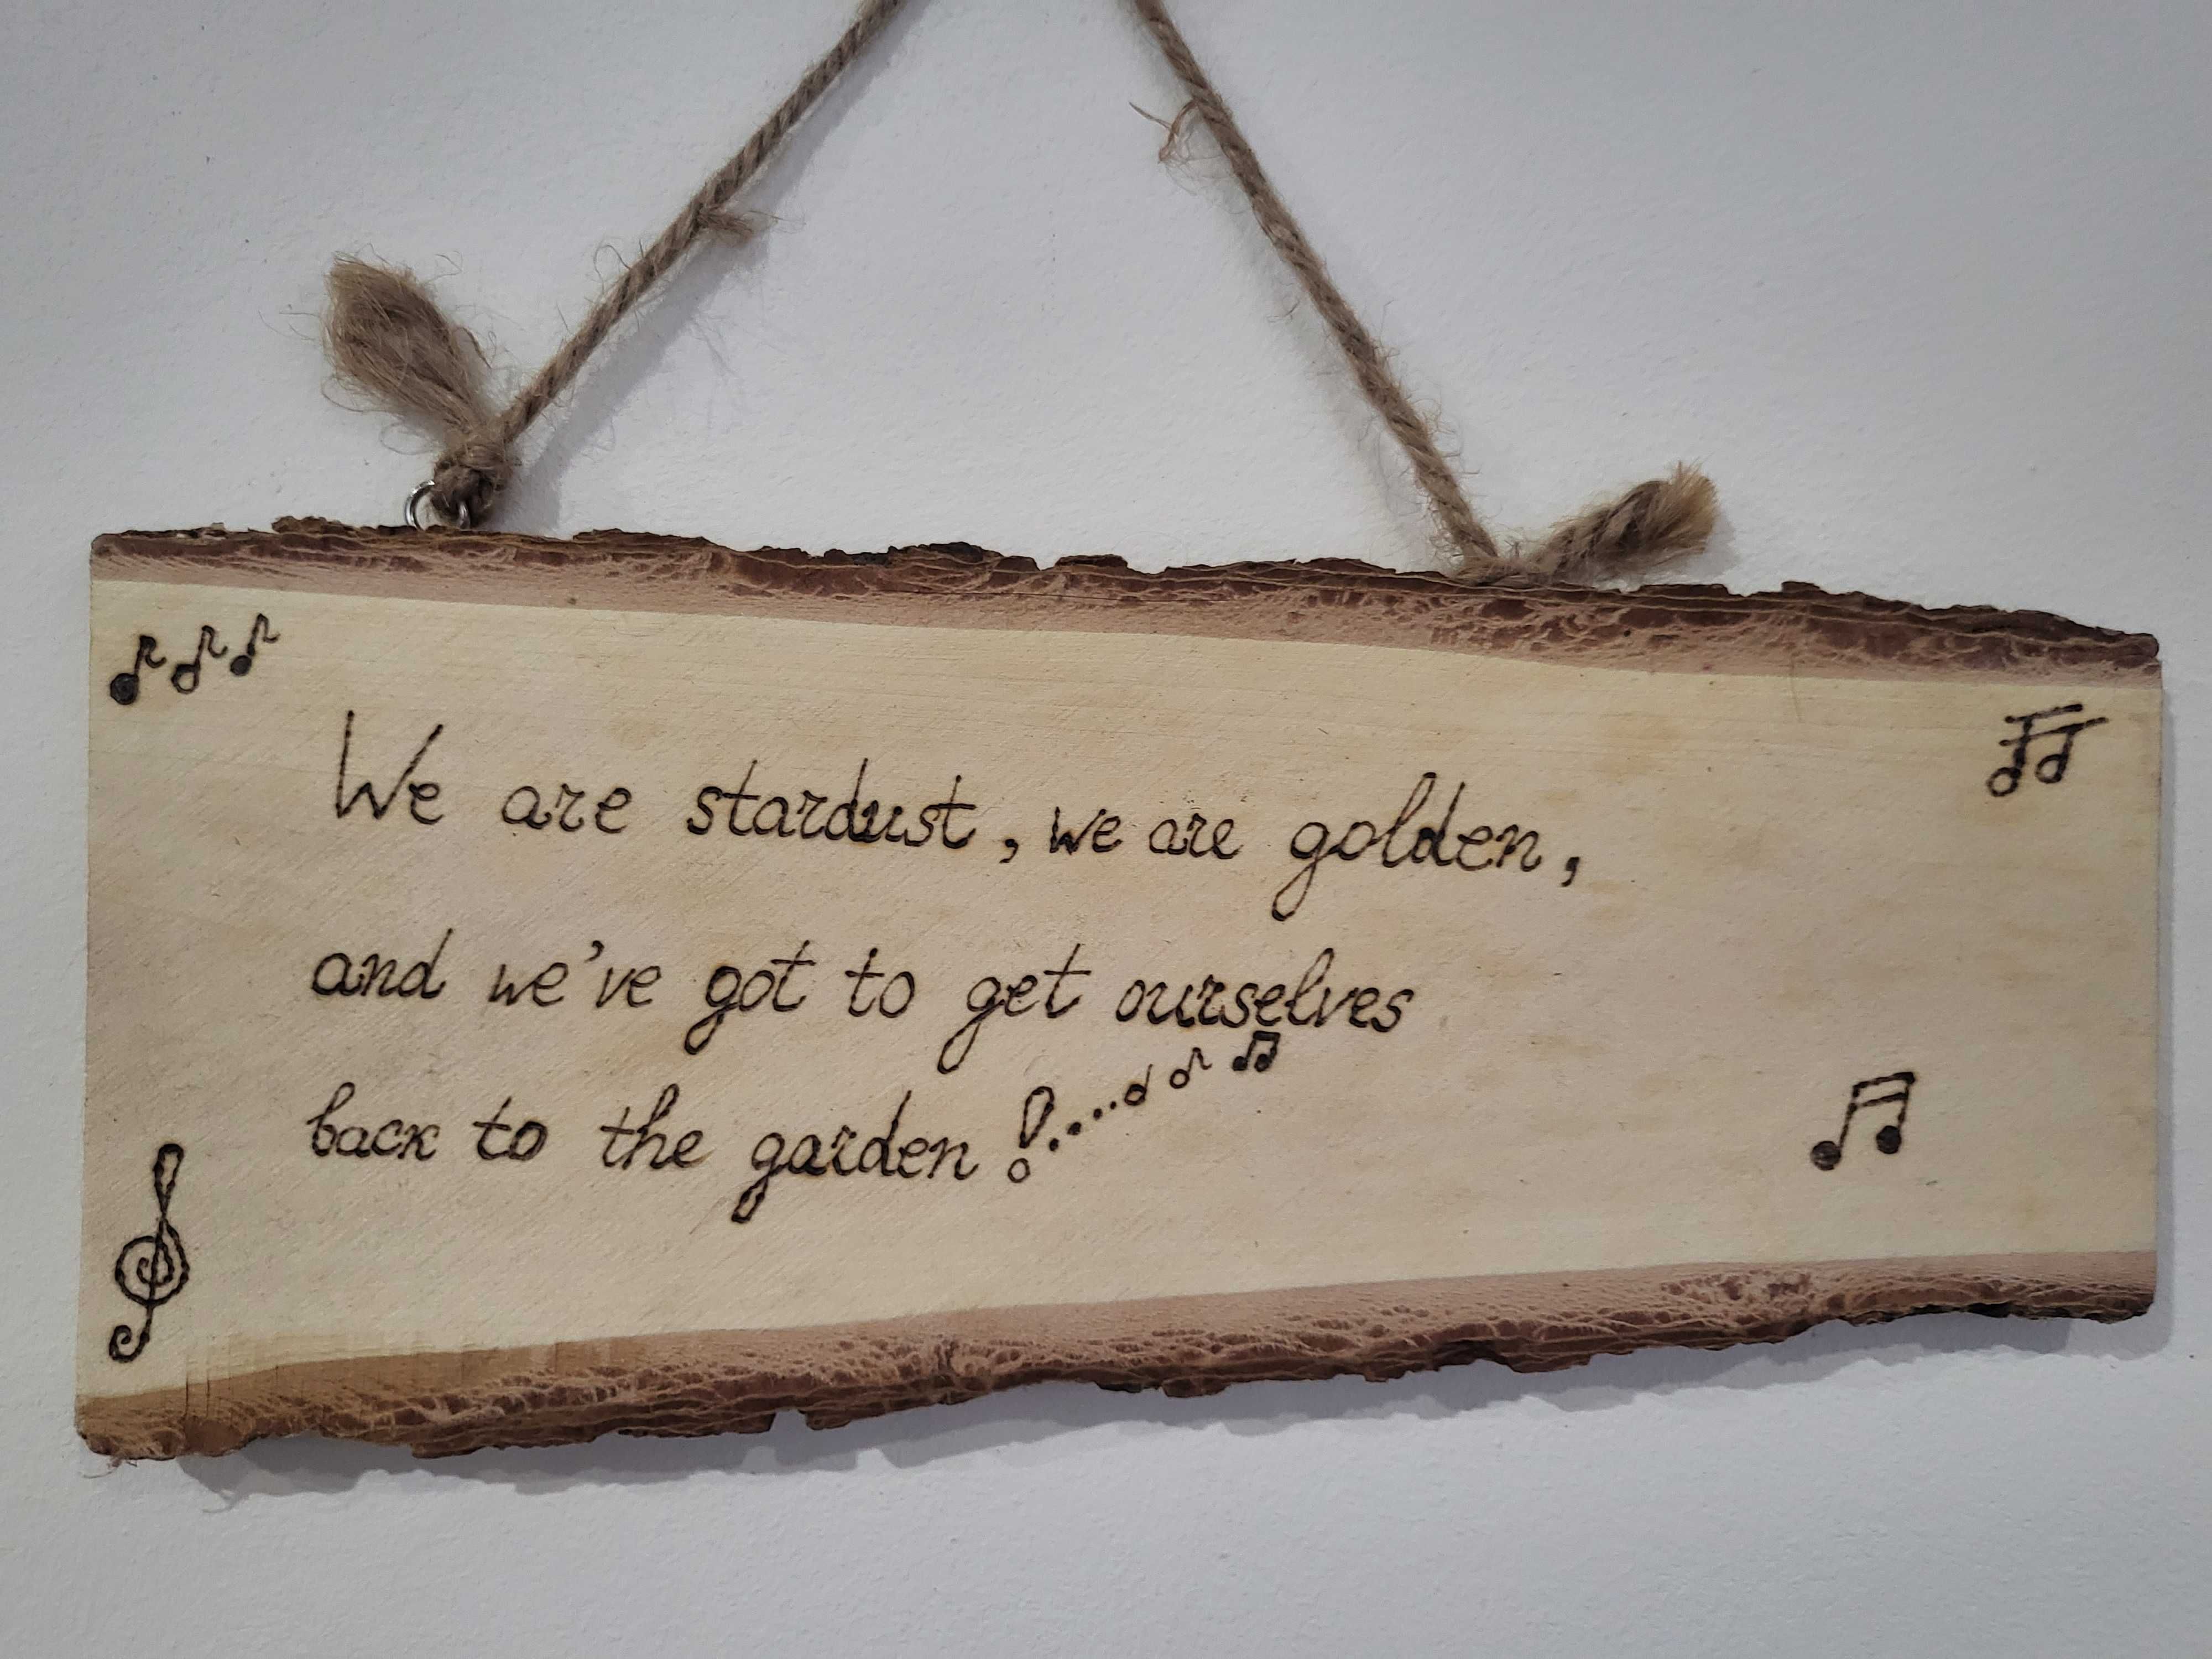 We are stardust, we are golden,
and we've got to get ourselves
back to the garden!....